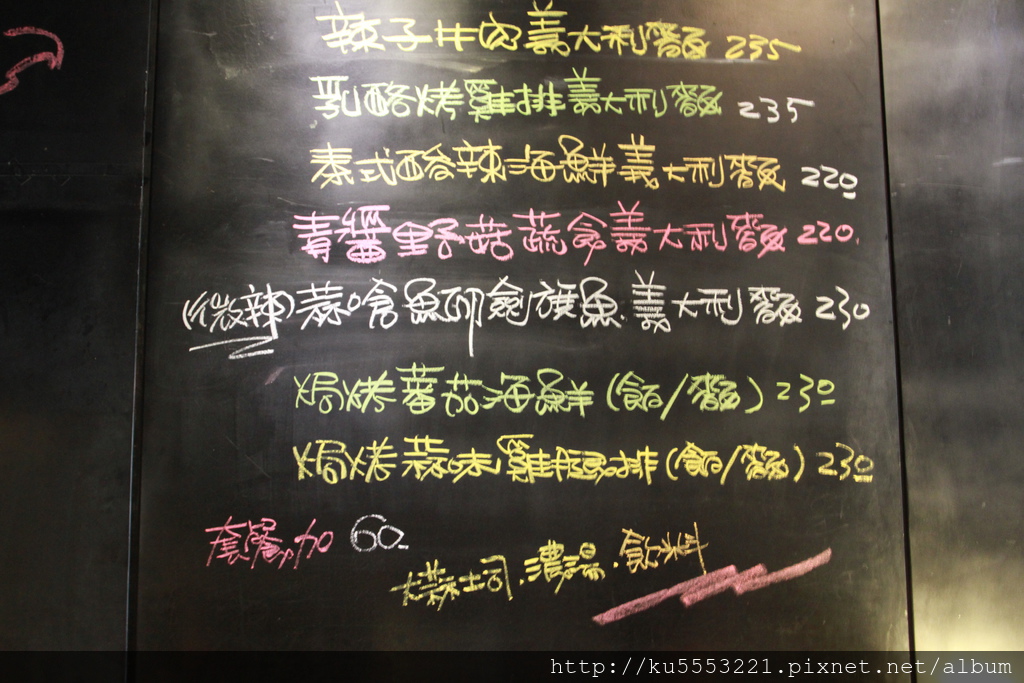 辣子牛肉義大利麵 235
乳酪烤雞排義大利麵 235
泰式酸辣海鮮義大利麵 220
青醬野菇蔬食義大利麵 220.
(微辣)蒜嗆魚卵劍旗魚義大利麵 230
焗烤蕃茄海鮮(飯/麵) 230
焗烤蒜味雞腿排(飯/麵) 230
套餐加 60.
大蒜土司.濃湯.飲料
http://ku5553221.pixnet.net/album